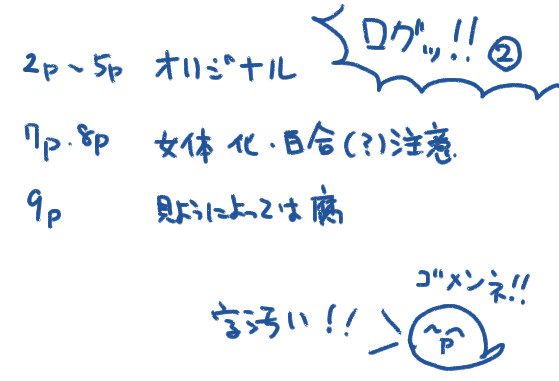 ログッ!! ②
2p~5p オリジナル
7p.8p 女体化・百合(?)注意
9p 見ようによっては腐
ゴメンネ!!
字汚い!!